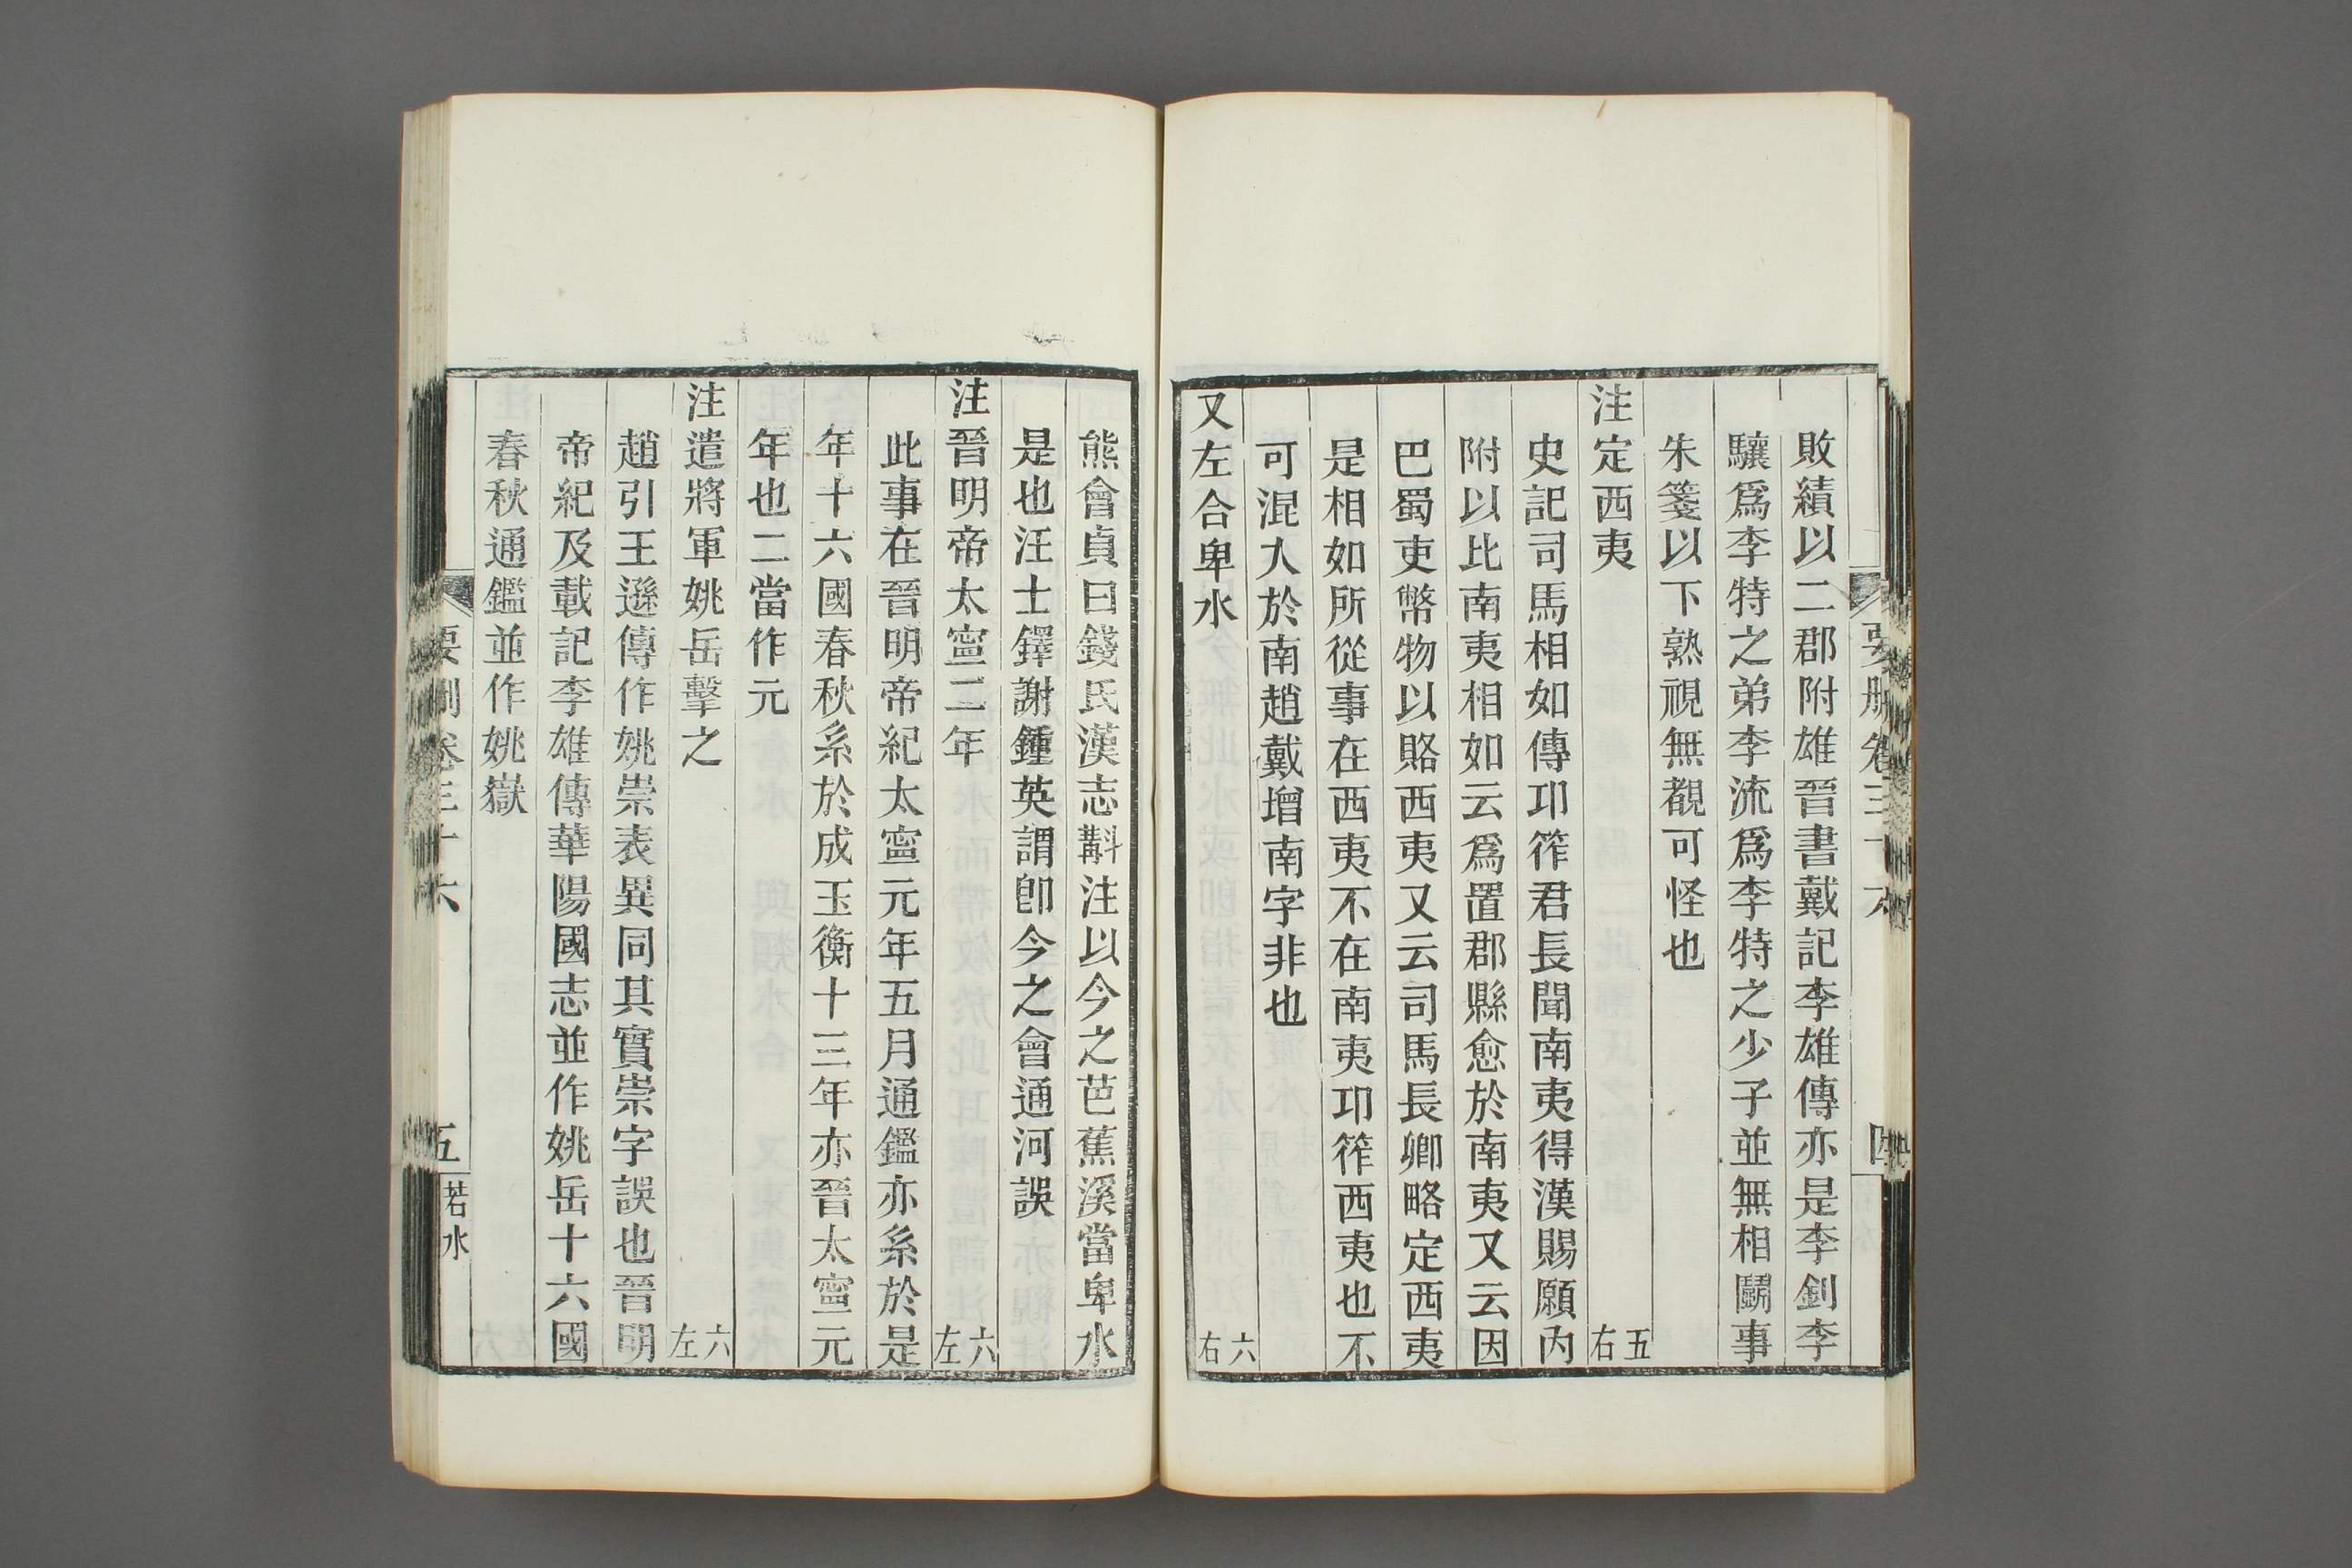 敗績以二郡附雄晉書戴記李雄傳亦是李釗李
驤爲李特之弟李流爲李特之少子並無相鬭事
朱箋以下熟視無覩可怪也
注定西夷 五右
史記司馬相如傳卭筰君長聞南夷得漢賜願內
附以比南夷相如云爲置郡縣愈於南夷又云因
巴蜀吏幣物以賂西夷又云司馬長卿略定西夷
是相如所從事在西夷不在南夷卭筰西夷也不
可混入於南趙戴增南字非也
又左合卑水 六右
熊會貞曰錢氏漢志斠注以今之芭蕉溪當卑水
是也汪士鐸謝鍾英謂卽今之會通河誤
注晉明帝太寧二年 六左
此事在晉明帝紀太寧元年五月通鑑亦系於是
年十六國春秋系於成玉衡十三年亦晉太寧元
年也二當作元
注遣將軍姚岳擊之 六左
趙引王遜傳作姚崇表異同其實崇字誤也晉明
帝紀及載記李雄傳華陽國志並作姚岳十六國
春秋通鑑並作姚嶽
要刪卷三十六 五 若水